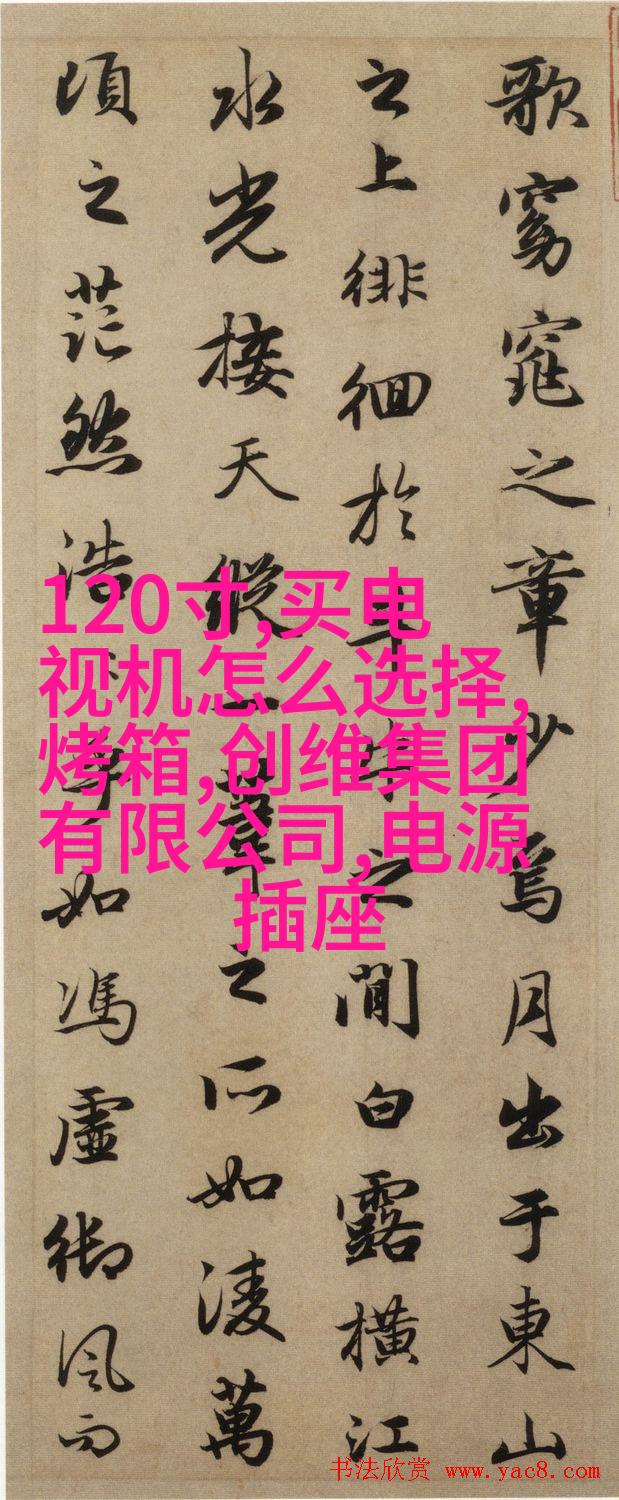 歌窈窕之章少焉月出于東山
之上徘徊於斗牛之間白露橫江
水光接天縱一葦之所如淩萬
頃之茫然浩乎如馮虛御風而
120寸,买电
视机怎么选择,
烤箱,创维集团
有限公司,电源
插座
书法欣赏 www.yac8.com